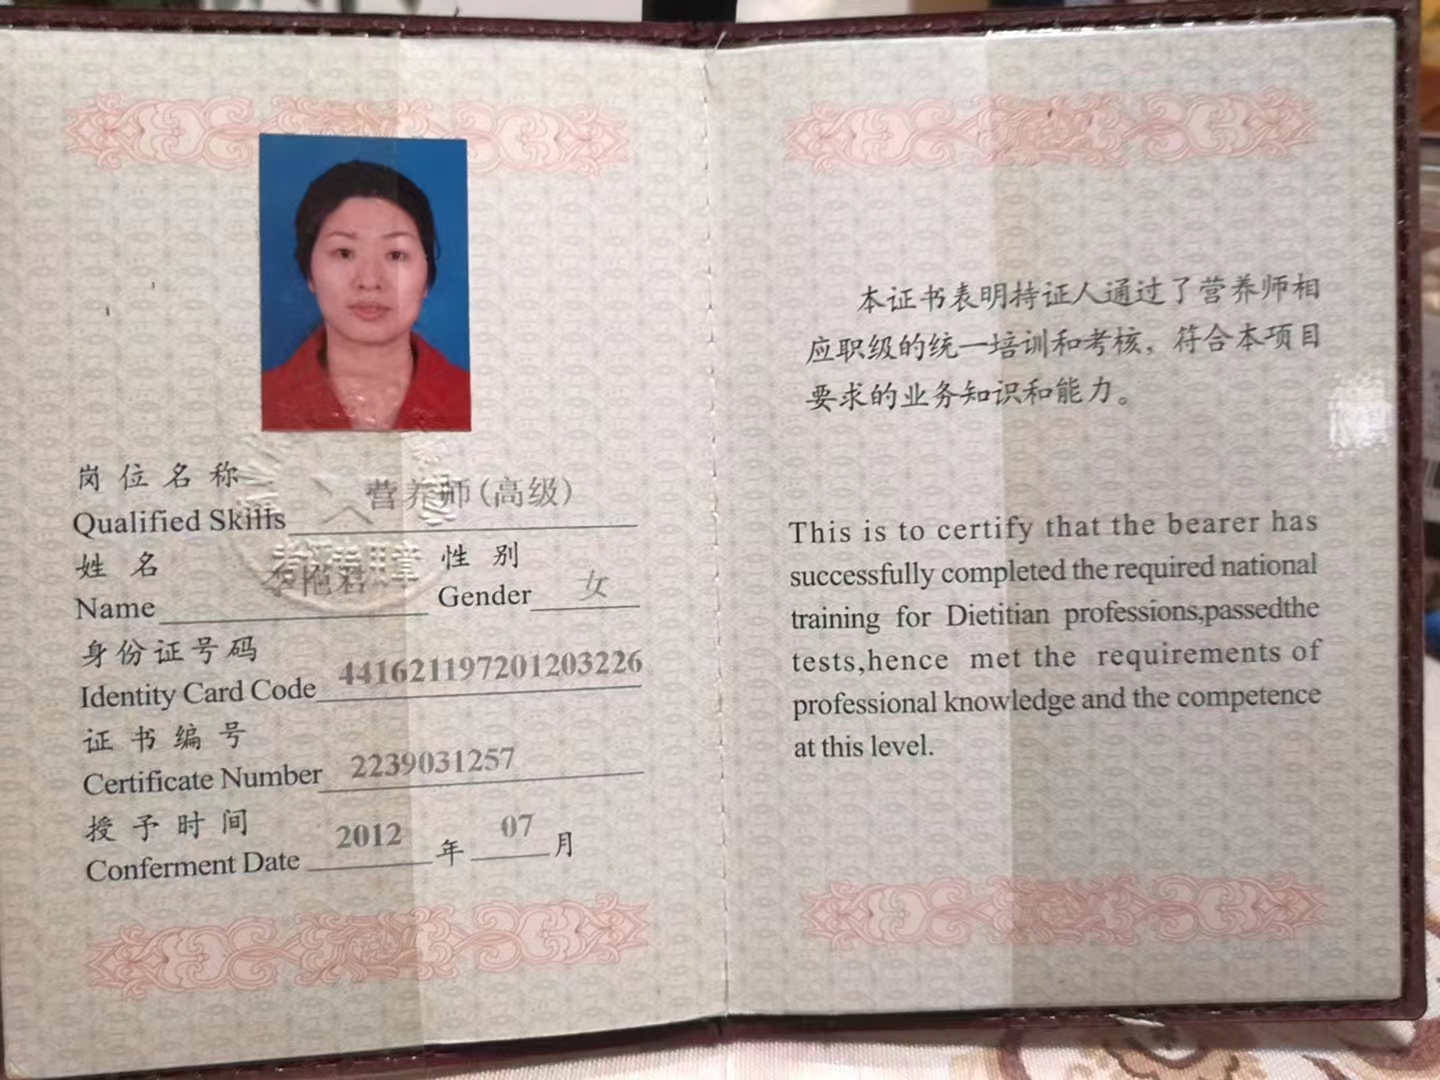 岗位名称
营养师(高级)
Qualified Skills
姓名
性别
Name
Gender 女
身份证号码
Identity Card Code 441621197201203226
证书编号
Certificate Number 2239031257
授予时间
Conferment Date 2012 年 07 月
本证书表明持证人通过了营养师相
应职级的统一培训和考核，符合本项目
要求的业务知识和能力。
This is to certify that the bearer has
successfully completed the required national
training for Dietitian professions,passedthe
tests,hence met the requirements of
professional knowledge and the competence
at this level.